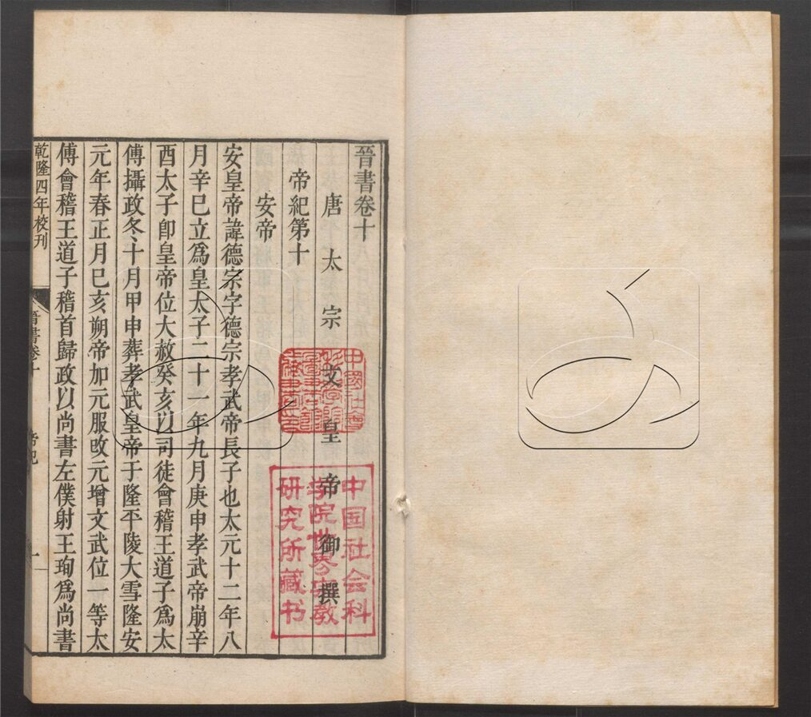 晉書卷十
唐太宗文皇帝御撰
帝紀第十
安帝
安皇帝諱德宗字德宗孝武帝長子也太元十二年八
月辛巳立爲皇太子二十一年九月庚申孝武帝崩辛
酉太子卽皇帝位大赦癸亥以司徒會稽王道子爲太
傅攝政冬十月甲申葬孝武皇帝于隆平陵大雪隆安
元年春正月己亥朔帝加元服改元增文武位一等太
傅會稽王道子稽首歸政以尚書左僕射王珣爲尚書
乾隆四年校刊
晉書卷十
一
中国社会科
学院世界宗教
研究所藏书